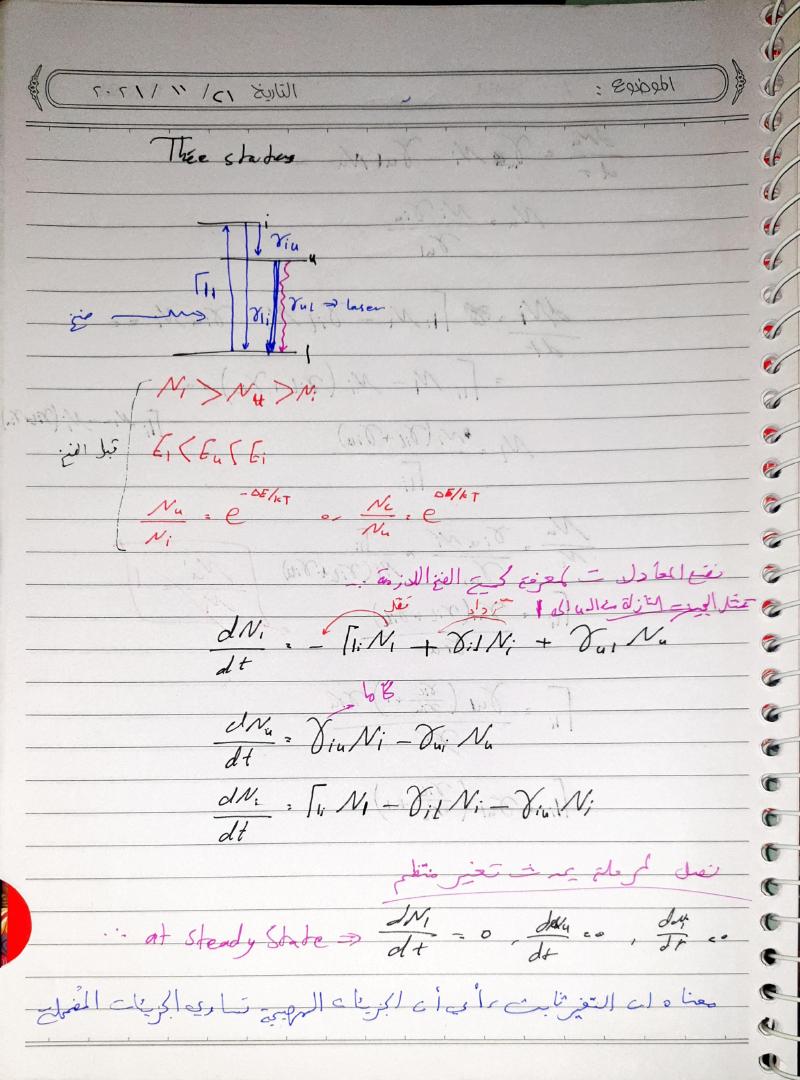 الموضوع : التاريخ ٢١ / ١١ / ٢٠٢١
Thee states
i
γiu
u
Γ1i
γ1i γul ⇒ laser
ضخ
1
N1 > Nu > Ni
قبل الضخ E1 < Eu < Ei
Nu/Ni = e^-ΔE/kT or Ni/Nu = e^ΔE/kT
نضع المعادلات لمعرفة كمية الضخ اللازمة :-
تمثل الجزيئات النازلة من الـ u إلى 1
تزداد
تقل
dN1/dt = - Γ1i N1 + γi1 Ni + γu1 Nu
كاما
dNu/dt = γiu Ni - γui Nu
dNi/dt = Γ1i N1 - γi1 Ni - γiu1 Ni
نصل لمرحلة يحدث تغير منتظم
∴ at steady state ⇒ dN1/dt = 0 , dNu/dt = 0 , dNi/dt = 0
معناه ان التغير ثابت ، أي أن الجزيئات المهيجة تساوي الجزيئات المضمحلة